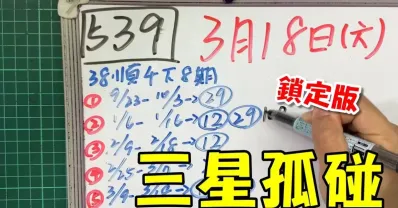 539
3月18日(六)
38順4下8期
① 9/23-10/3→29
② 1/6-1/16→12 29
③ 2/9-2/18→12
④ 2/25-
⑤ 3/9-
鎖定版
三星孤碰